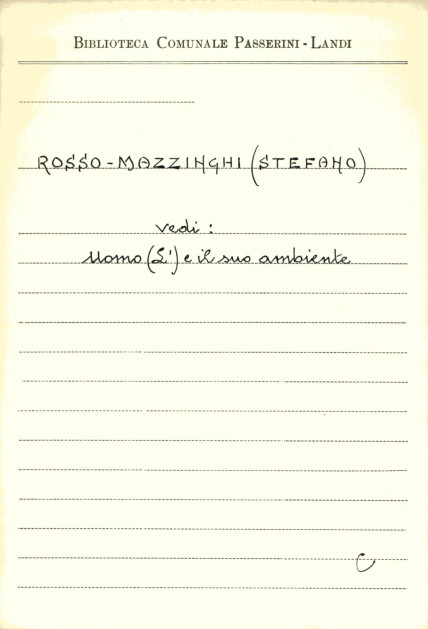 BIBLIOTECA COMUNALE PASSERINI-LANDI
ROSSO-MAZZINGHI (STEFANO)
vedi:
Uomo (L') e il suo ambiente
C